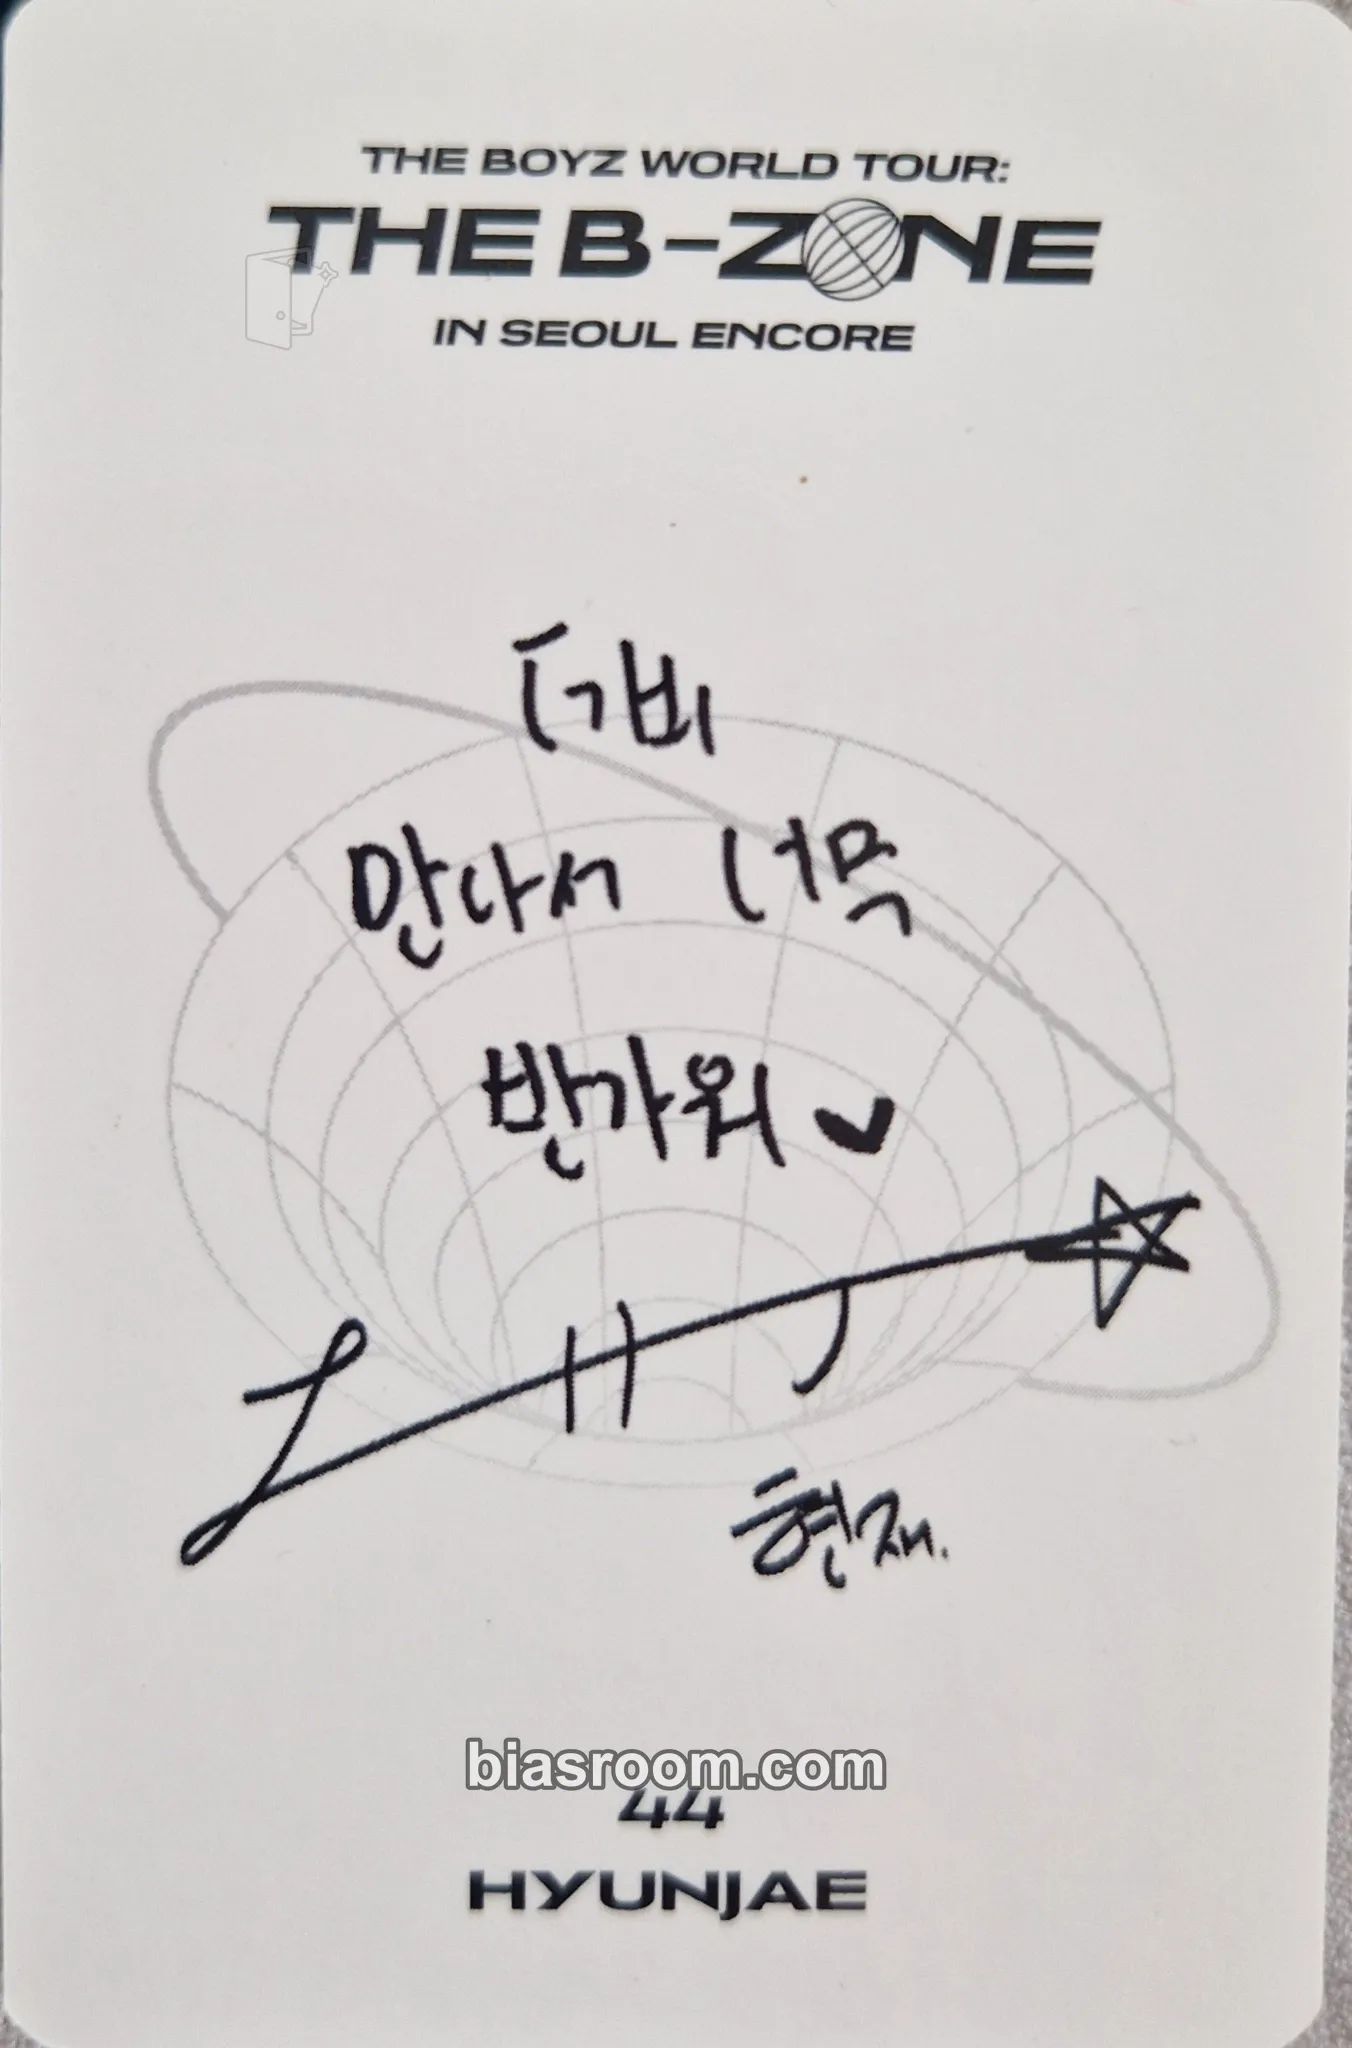 THE BOYZ WORLD TOUR:
THE B-ZONE
IN SEOUL ENCORE
더비
만나서 너무
반가워 ♥
현재.
biasroom.com
44
HYUNJAE